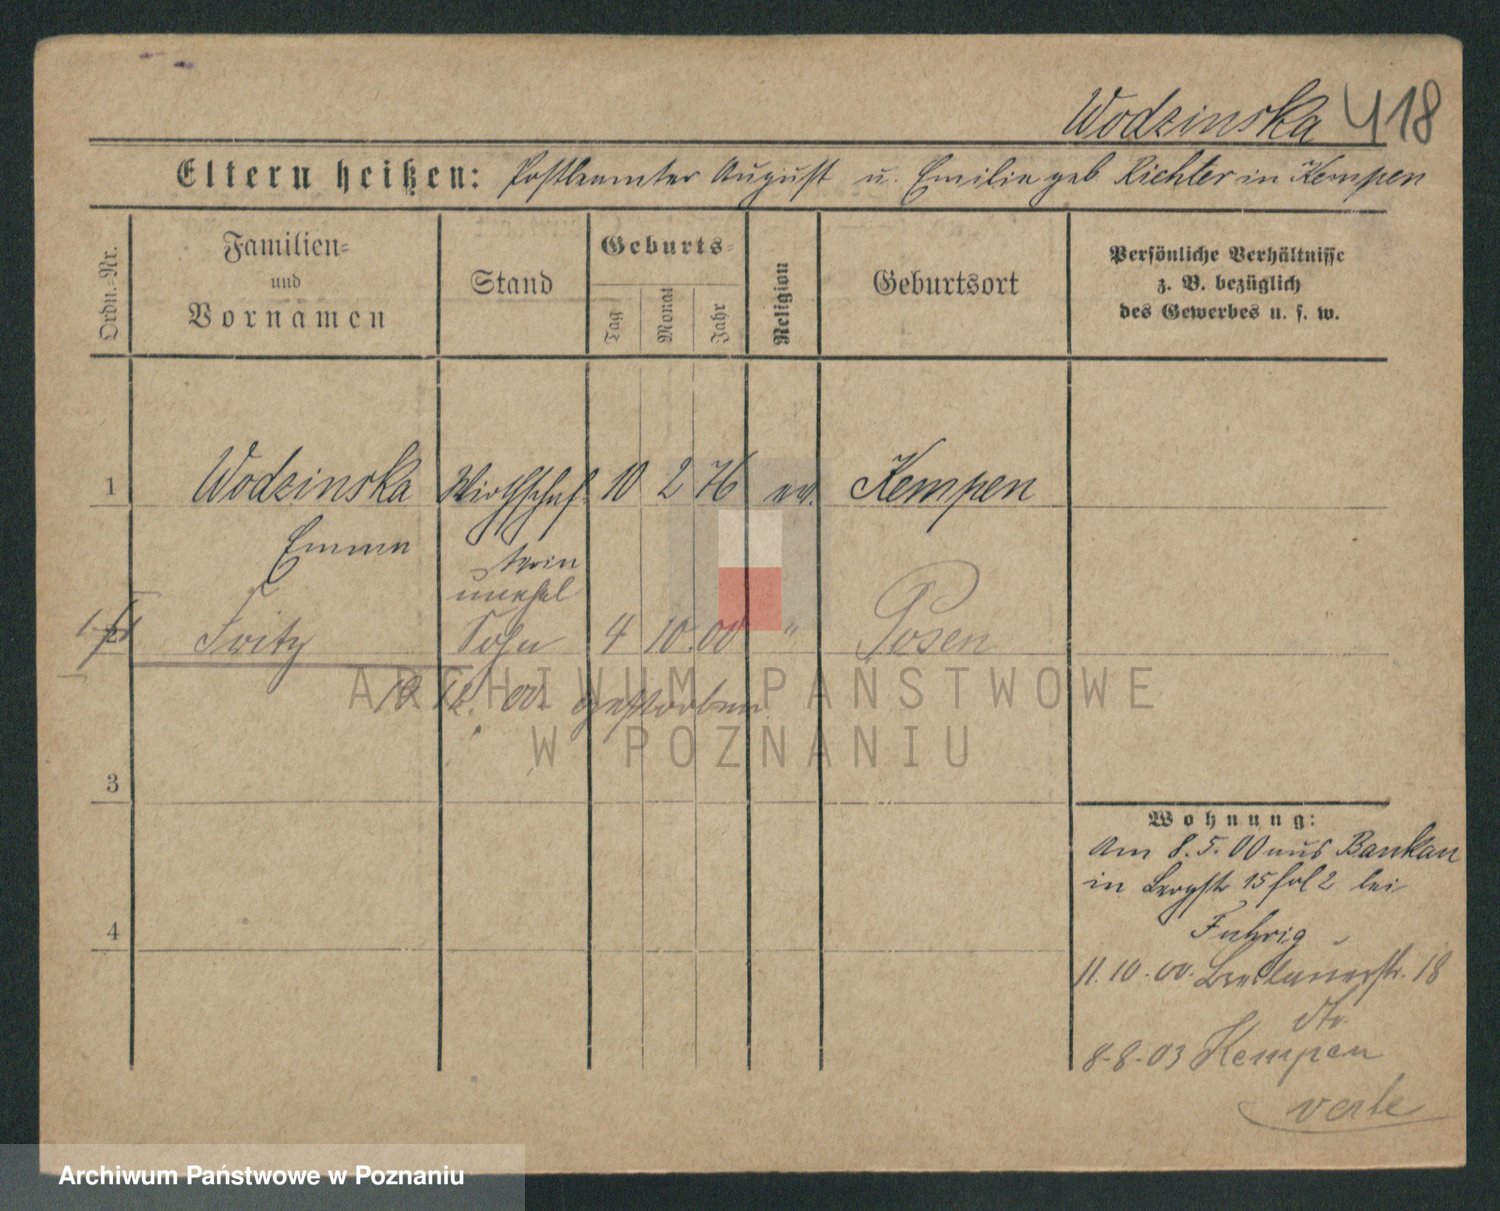 Wodzinska 418
Eltern heißen: Postbeamter August u. Emilie geb Richter in Kempen
Ordn.-Nr.
Familien-
und
Vornamen
Stand
Geburts-
Tag
Monat
Jahr
Religion
Geburtsort
Persönliche Verhältnisse
z. B. bezüglich
des Gewerbes u. s. w.
1 Wodzinska Wirthschaf- 10 2 76 ev. Kempen
Emma terin
unehel
2 Fritz Sohn 4 10. 00 " Posen
12. 00. gestorben
ARCHIWUM PAŃSTWOWE
W POZNANIU
3
4
Wohnung:
Am 8. 5. 00 aus Bankau
in Bergstr 15 bei
Fuhrig
11. 10. 00. Breslauerstr. 18
8-8-03 Kempen
Archiwum Państwowe w Poznaniu